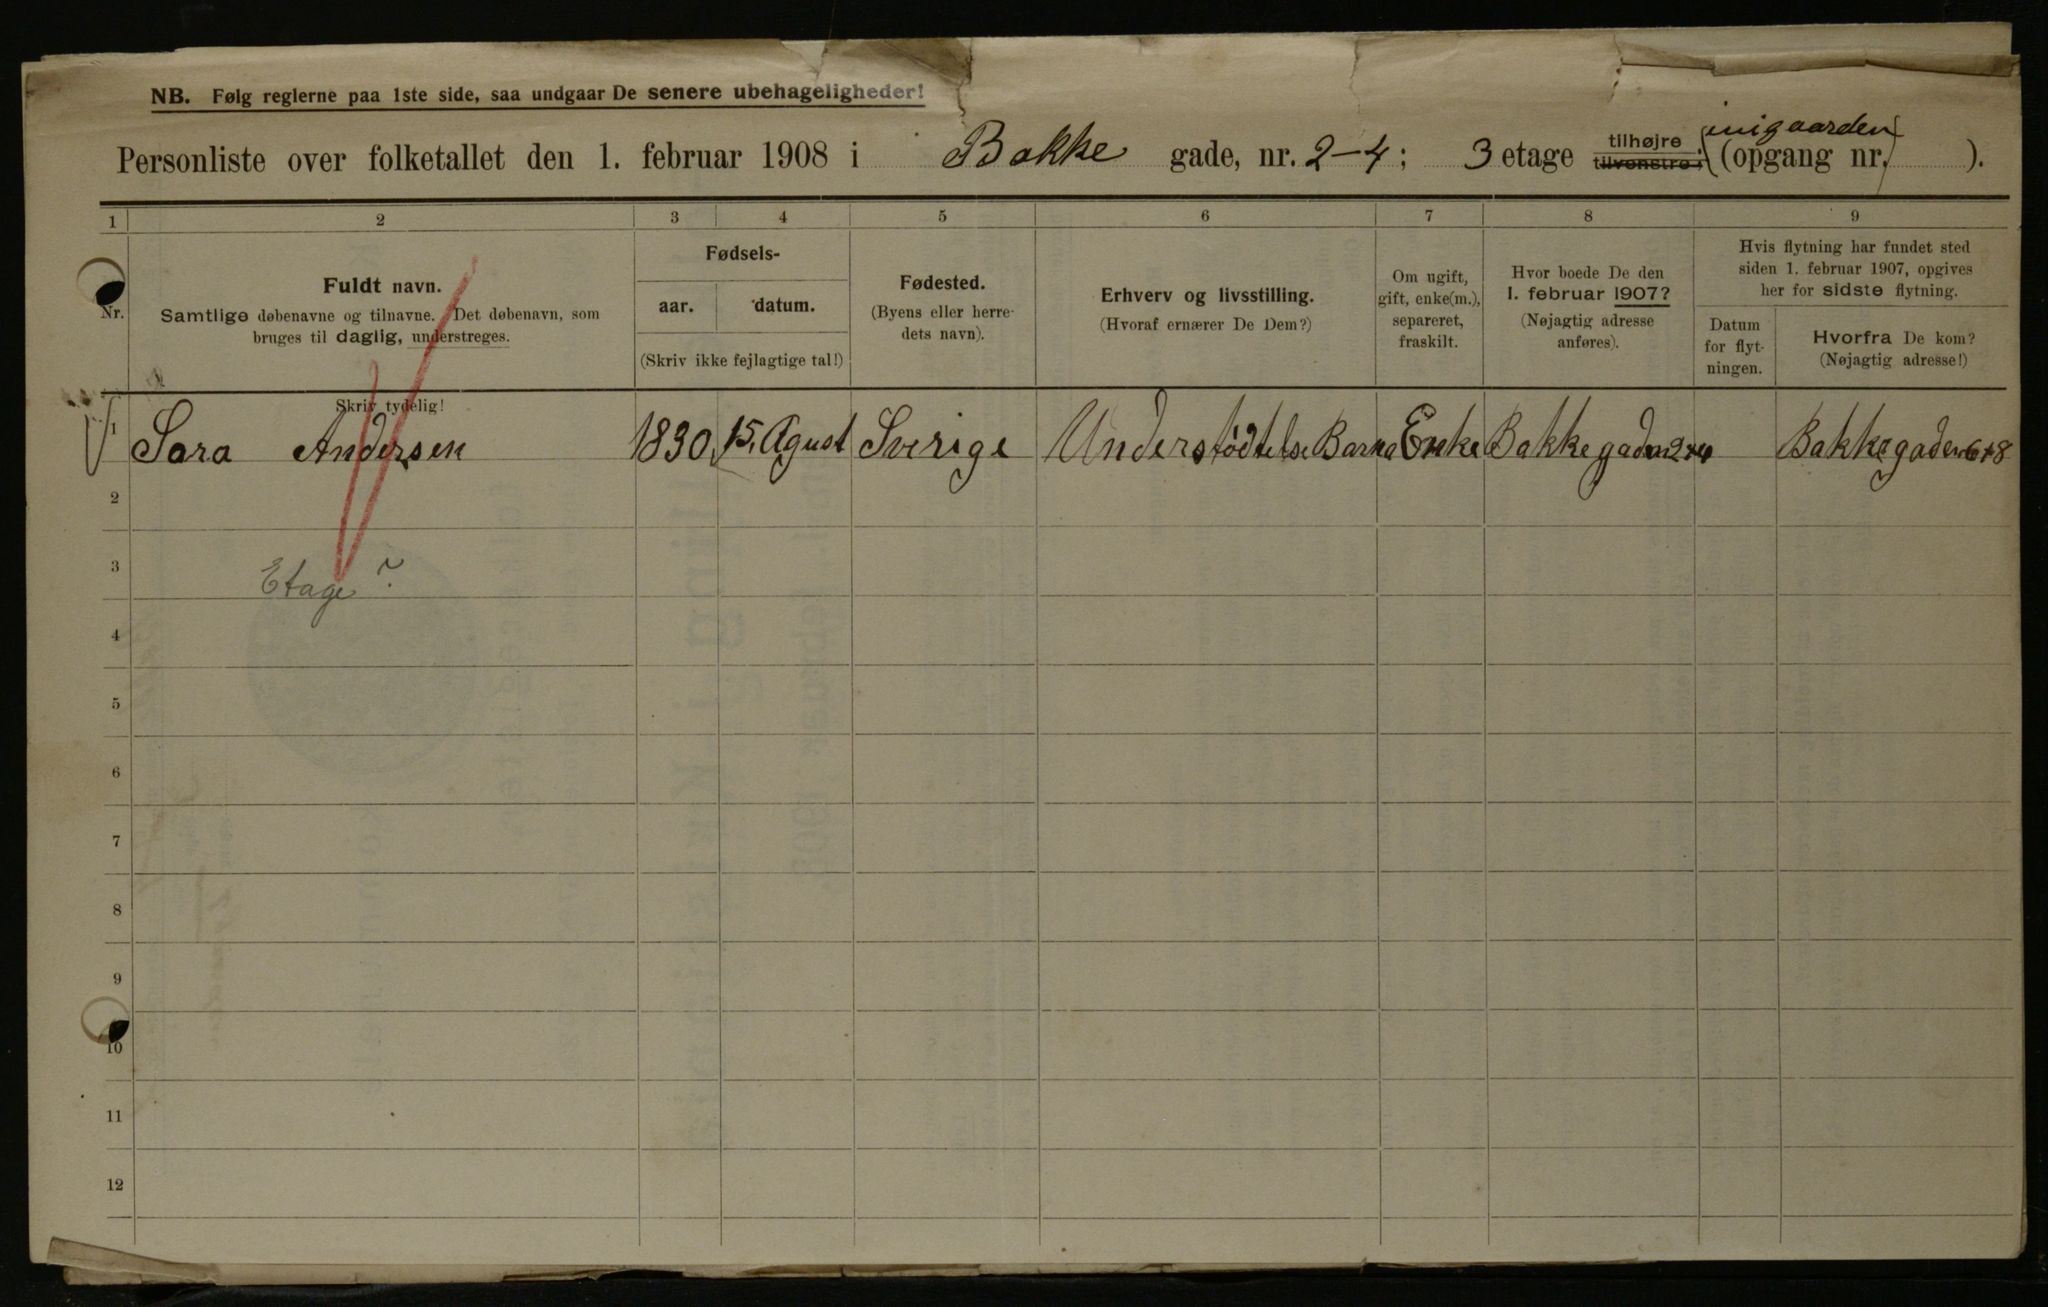 NB. Følg reglerne paa 1ste side, saa undgaar De senere ubehageligheder!
Personliste over folketallet den 1. februar 1908 i Bakke gade, nr. 2-4; 3 etage tilhøjre tilvenstre; (opgang nr. ).
inigaarden
1 2 3 4 5 6 7 8 9
Nr.
Fuldt navn.
Samtlige døbenavne og tilnavne. Det døbenavn, som
bruges til daglig, understreges.
Skriv tydelig!
Fødsels-
aar. datum.
(Skriv ikke fejlagtige tal!)
Fødested.
(Byens eller herre-
dets navn).
Erhverv og livsstilling.
(Hvoraf ernærer De Dem?)
Om ugift,
gift, enke(m.),
separeret,
fraskilt.
Hvor boede De den
1. februar 1907?
(Nøjagtig adresse
anføres).
Hvis flytning har fundet sted
siden 1. februar 1907, opgives
her for sidste flytning.
Datum
for flyt-
ningen.
Hvorfra De kom?
(Nøjagtig adresse!)
1 Sara Andersen 1830 15. Agust Sverige Understødtelse Enke Bakkegaden 2+4 Bakkegaden 6+8
2
3
Etage?
4
5
6
7
8
9
10
11
12